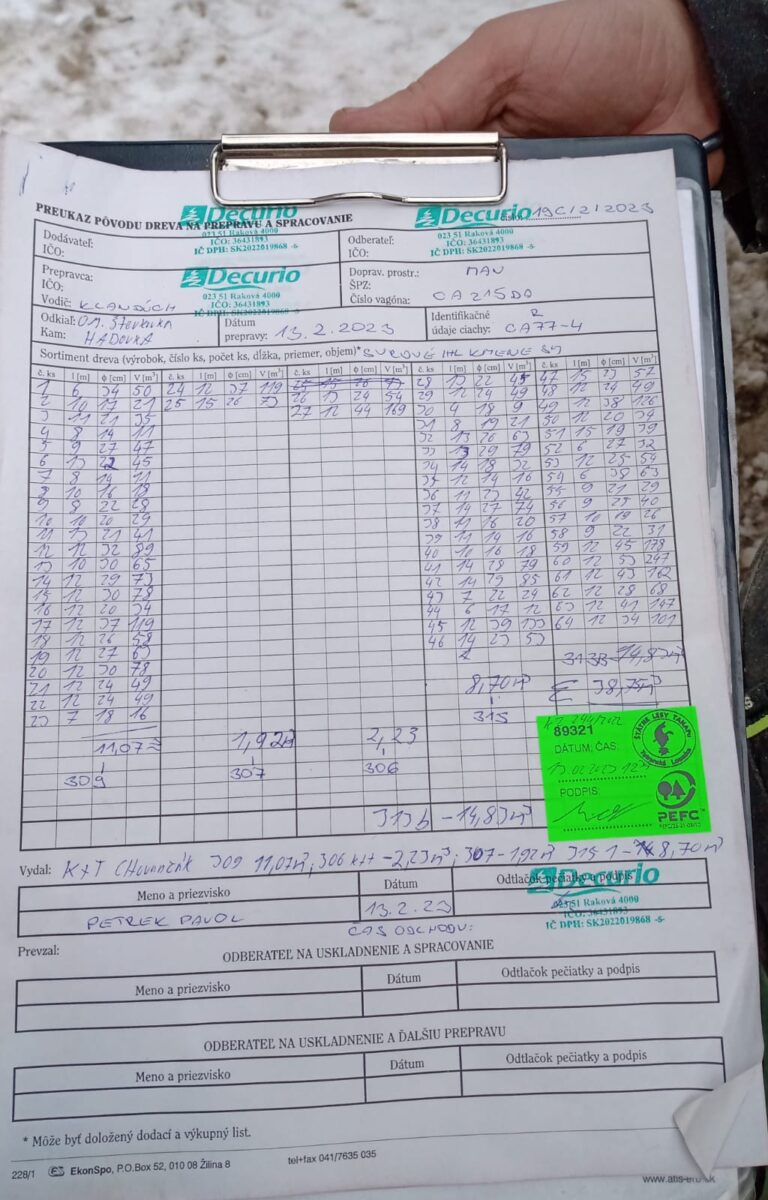 PREUKAZ PÔVODU DREVA NA PREPRAVU A SPRACOVANIE
Decurio
023 51 Raková 4000
IČO: 36431893
IČ DPH: SK2022019868 -5-
Decurio
023 51 Raková 4000
IČO: 36431893
IČ DPH: SK2022019868 -5-
19C/2/2023
Dodávateľ:
IČO:
Odberateľ:
IČO:
Prepravca:
IČO:
Decurio
023 51 Raková 4000
IČO: 36431893
Doprav. prostr.: MAN
ŠPZ:
Číslo vagóna: CA215DO
Vodič:
Odkiaľ: O.M.
Kam: HADOVKA
Dátum
prepravy: 13.2.2023
Identifikačné
údaje ciachy: CA77-4
Sortiment dreva (výrobok, číslo ks, počet ks, dĺžka, priemer, objem)* SUROVÉ IHL KMENE
č. ks l [m] ϕ [cm] V [m³] č. ks l [m] ϕ [cm] V [m³] č. ks l [m] ϕ [cm] V [m³] č. ks l [m] ϕ [cm] V [m³] č. ks l [m] ϕ [cm] V [m³]
1 6 34 50 24 12 37 119 28 13 22 45 47 15 23 57
2 10 17 21 25 15 26 73 26 13 24 54 29 12 24 49 48 12 24 49
3 11 21 35 27 12 44 169 30 4 18 9 49 12 38 126
4 8 14 11 31 8 19 21 50 12 20 34
5 9 27 47 32 13 26 63 51 15 19 39
6 13 22 45 33 13 29 79 52 6 27 32
7 8 14 11 34 14 18 32 53 12 25 54
8 10 16 18 35 12 14 16 54 6 38 63
9 8 22 28 36 11 23 42 55 9 21 29
10 10 20 29 37 14 27 74 56 9 25 40
11 13 21 41 38 11 16 20 57 10 19 26
12 12 32 89 39 11 14 16 58 9 22 31
13 10 30 65 40 10 16 18 59 12 45 178
14 12 29 73 41 14 28 79 60 12 53 247
15 12 30 78 42 14 29 85 61 12 43 162
16 12 20 34 43 7 22 24 62 12 28 68
17 12 37 119 44 6 17 12 63 12 41 147
18 12 26 58 45 12 39 133 64 12 34 101
19 12 27 63 46 14 23 53
20 12 30 78
21 12 24 49
22 12 24 49
23 7 18 16
313B 14,83m³
8,70m³ 38,75m³
315
11,07 1,92 2,23
309 307 306
313b -14,83m³
89321
DÁTUM, ČAS:
PODPIS
ŠTÁTNE LESY TANAPU
Tatranská Lomnica
PEFC™
Vydal: K+T 309 11,07m³, 306 k+t -2,23m³, 307-1,92m³ 315 1- 8,70m³
Meno a priezvisko
Dátum
Odtlačok pečiatky a podpis
PETREK PAVOL
13.2.23
Decurio
023 51 Raková 4000
IČO: 36431893
IČ DPH: SK2022019868 -5-
ČAS ODCHODU:
Prevzal:
ODBERATEĽ NA USKLADNENIE A SPRACOVANIE
Meno a priezvisko
Dátum
Odtlačok pečiatky a podpis
ODBERATEĽ NA USKLADNENIE A ĎALŠIU PREPRAVU
Meno a priezvisko
Dátum
Odtlačok pečiatky a podpis
* Môže byť doložený dodací a výkupný list.
228/1 EkonSpo, P.O.Box 52, 010 08 Žilina 8 tel+fax 041/7635 035